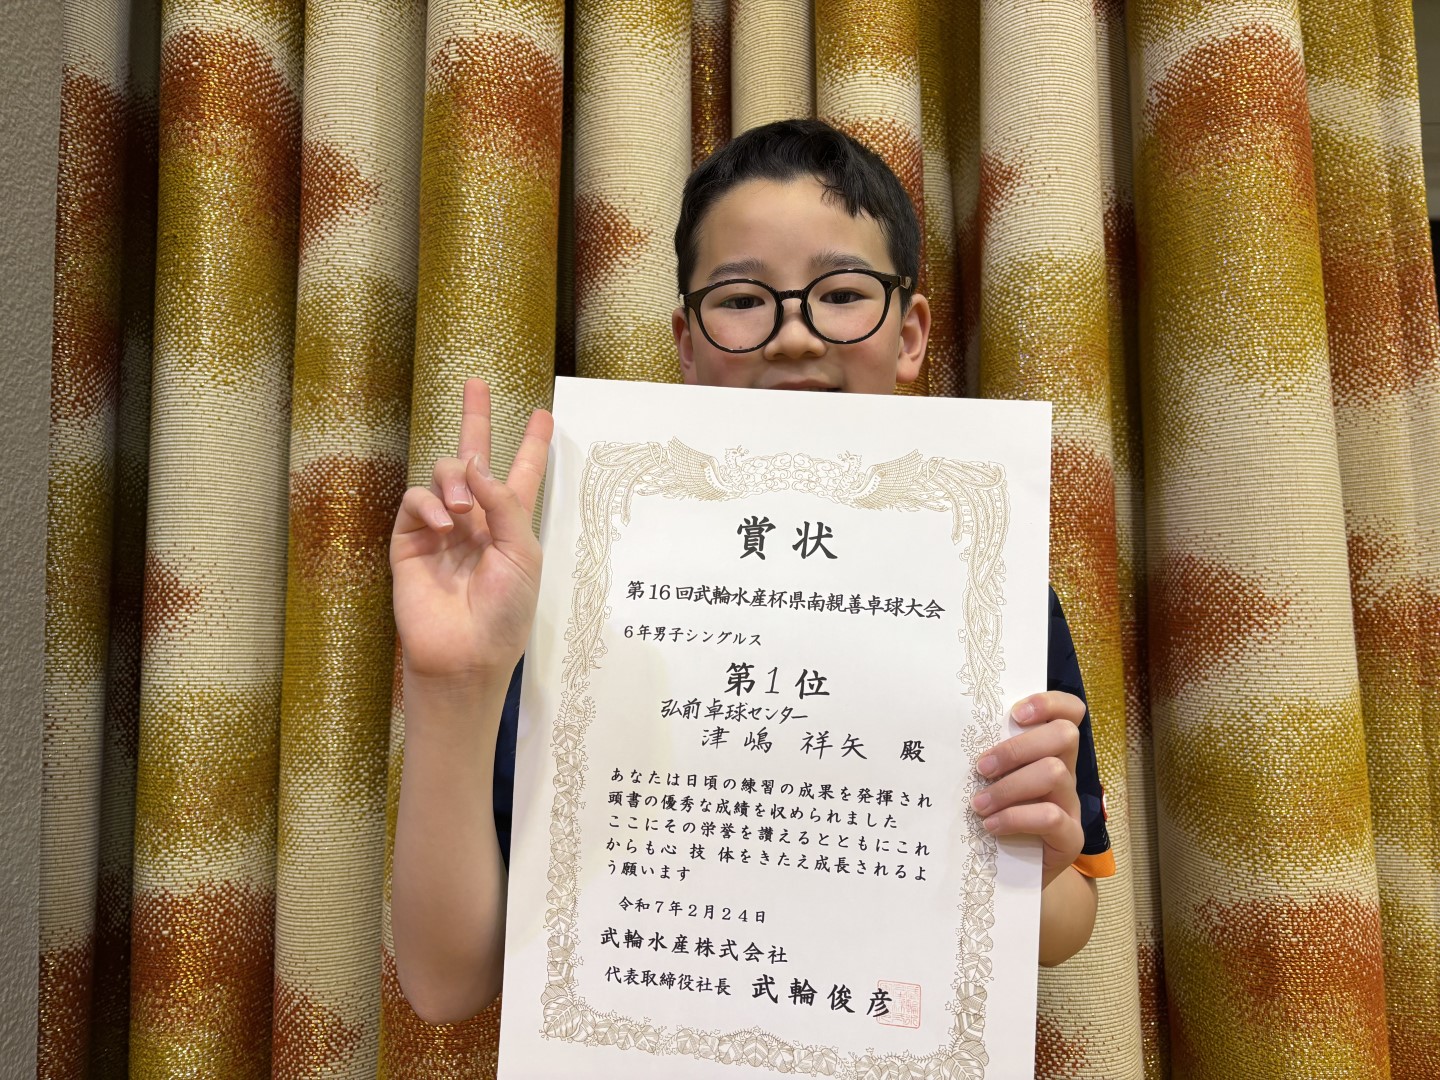 賞状
第16回武輪水産杯県南親善卓球大会
6年男子シングルス
第1位
弘前卓球センター
津嶋 祥矢 殿
あなたは日頃の練習の成果を発揮され
頭書の優秀な成績を収められました
ここにその栄誉を讃えるとともにこれ
からも心 技 体をきたえ成長されるよ
う願います
令和7年2月24日
武輪水産株式会社
代表取締役社長 武輪俊彦